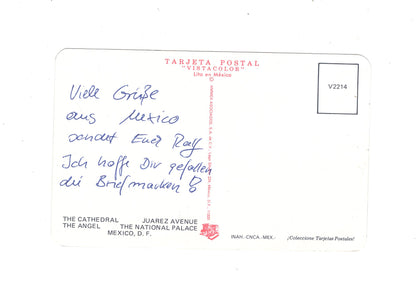 TARJETA POSTAL
"VISTACOLOR"
Lito en México
V2214
Viele Grüße
aus Mexico
sendet Euer Ralf
Ich hoffe Dir gefallen
die Briefmarken
THE CATHEDRAL JUAREZ AVENUE
THE ANGEL THE NATIONAL PALACE
MEXICO, D. F.
INAH.-CNCA.-MEX.-
¡Coleccione Tarjetas Postales!